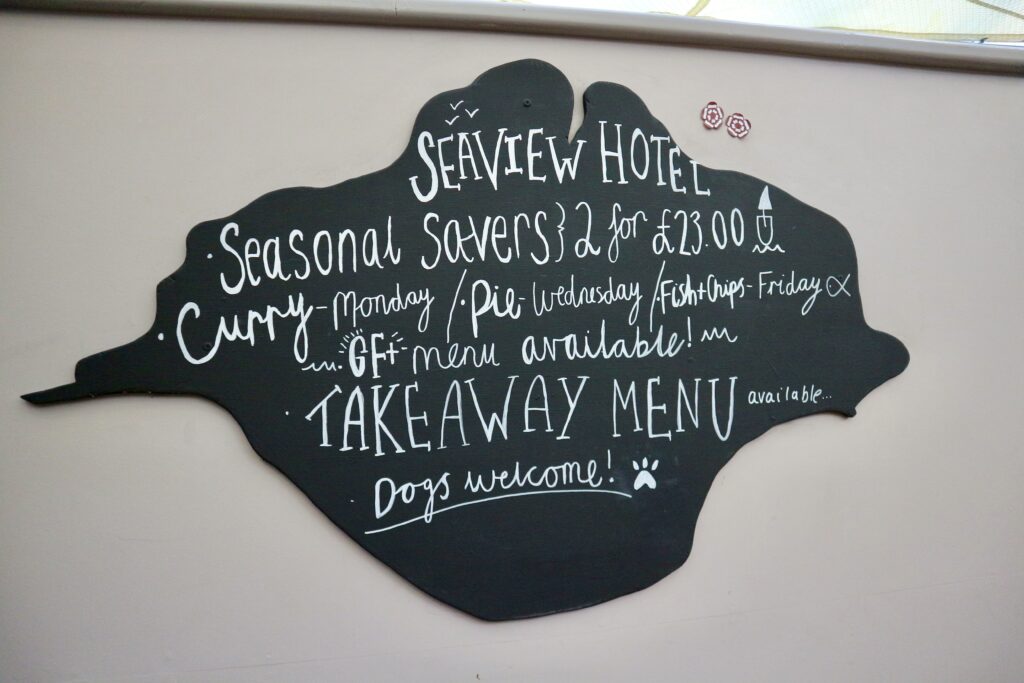 SEAVIEW HOTEL
· Seasonal Savers } 2 for £23.00
· Curry - Monday / · Pie - Wednesday / · Fish + Chips - Friday
· GF + menu available!
· TAKEAWAY MENU available...
Dogs welcome!